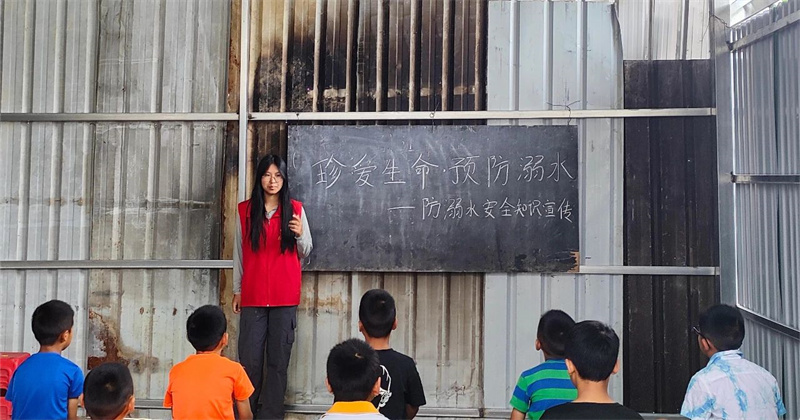 珍爱生命·预防溺水
——防溺水安全知识宣传